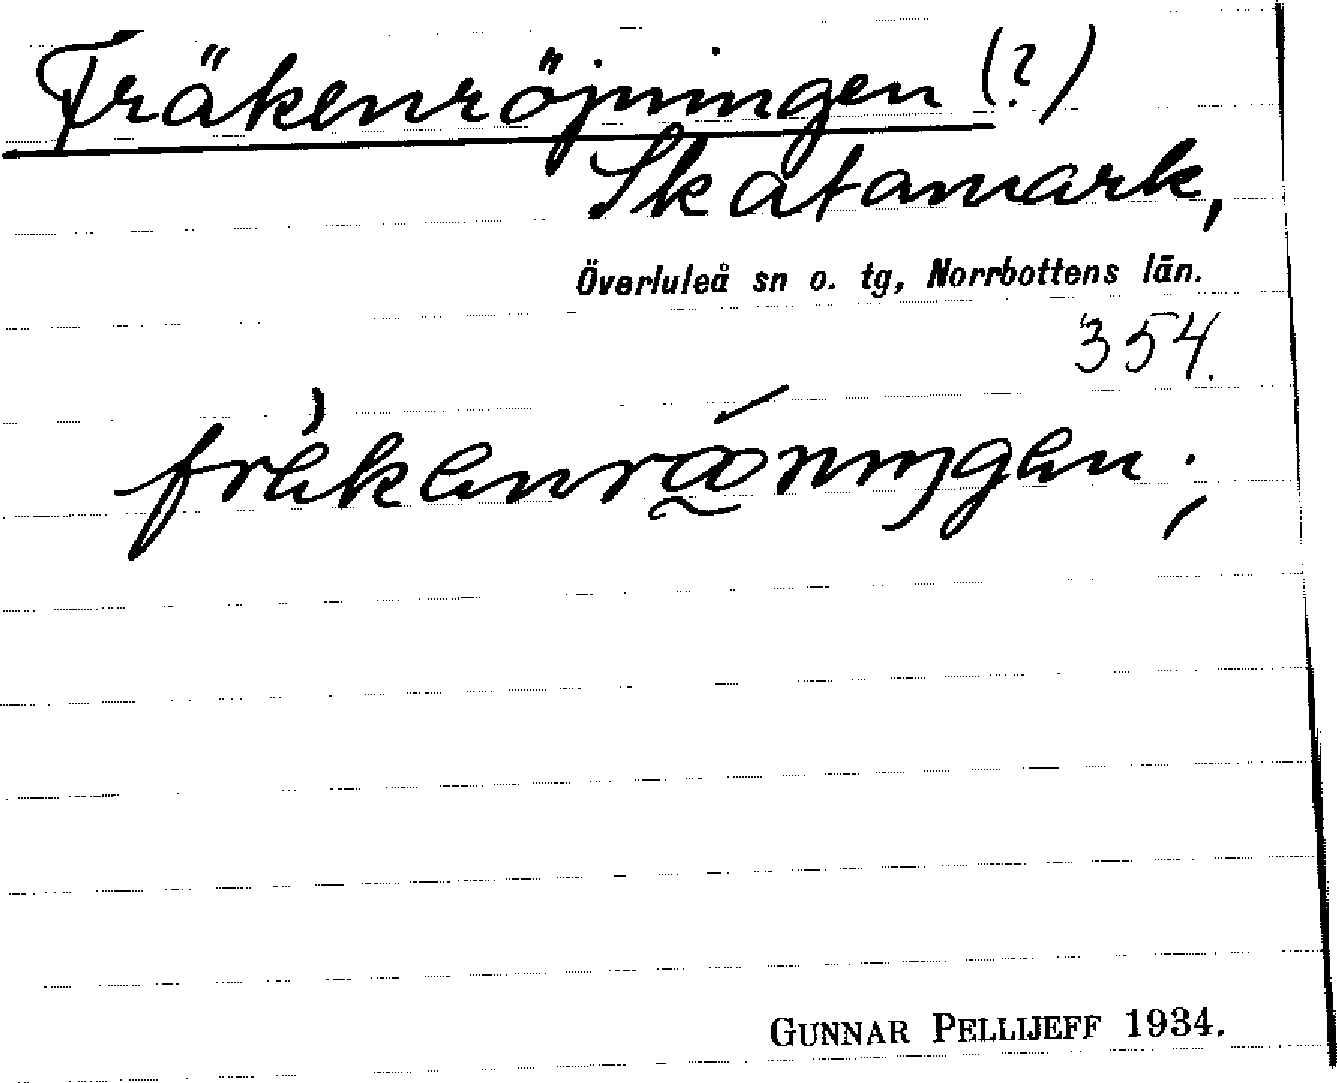 Fräkenröjningen (?)
Skatamark,
Överluleå sn o. tg, Norrbottens län.
354.
GUNNAR PELLIJEFF 1934.